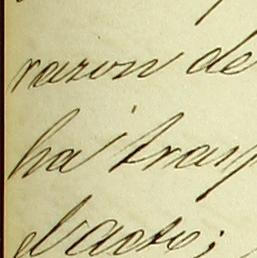 razon de
ha trasp
el acto;